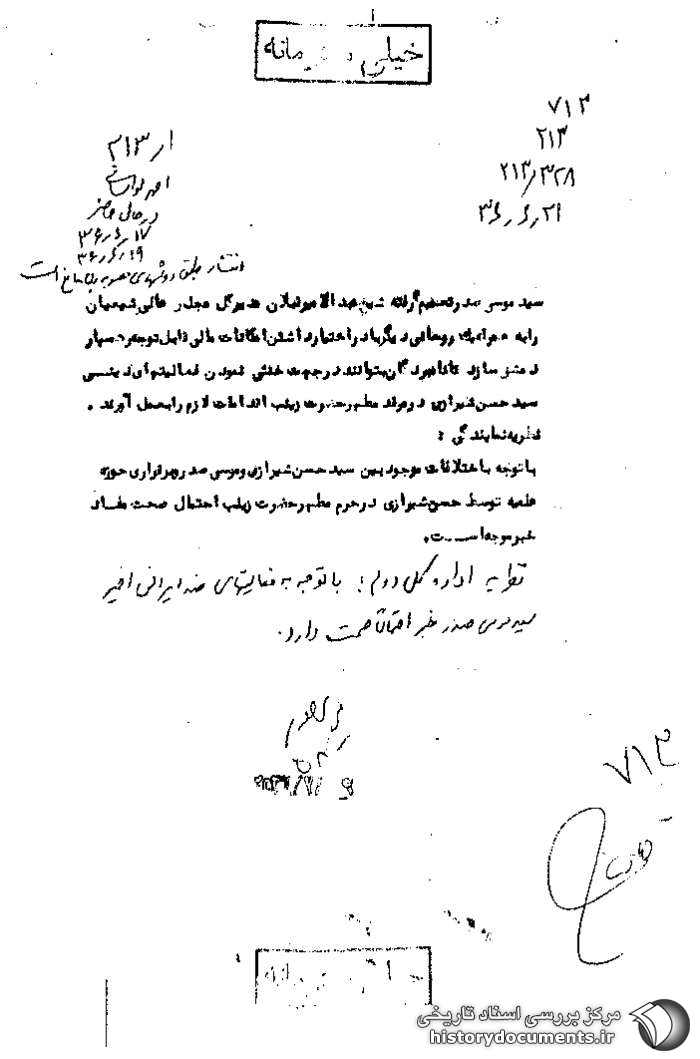 خیلی محرمانه
۷۱۳
۲۱۳
۲۱۳/۳۲۸
۳۶٫۶٫۲۱
از ۲۱۳
در حال حاضر
۳۶٫۶٫۱۷
۳۶٫۶٫۱۹
انتشار مطلق روشهای بلا مانع است
سید موسی صدر تصمیم گرفته شیخ عبدالامیر قبلان مدیر کل مجلس عالی شیعیان
را به همراه یک روحانی دیگر با در اختیار داشتن امکانات مالی قابل توجه رهسپار
دمشق سازد تا نامبردگان بتوانند در جهت خنثی نمودن فعالیتهای دینی
سید حسن شیرازی در مرقد مطهر حضرت زینب اقدامات لازم را بعمل آورند .
نظریه نمایندگی :
با توجه به اختلافات موجود بین سید حسن شیرازی و موسی صدر و برقراری حوزه
علمیه توسط حسن شیرازی در حرم مطهر حضرت زینب احتمال صحت مفاد
خبر موجه است.
نظریه اداره کل دوم : با توجه به فعالیتهای ضد ایرانی اخیر
سید موسی صدر خبر احتمالاً صحت دارد.
۷۱۳
مرکز بررسی اسناد تاریخی
historydocuments.ir